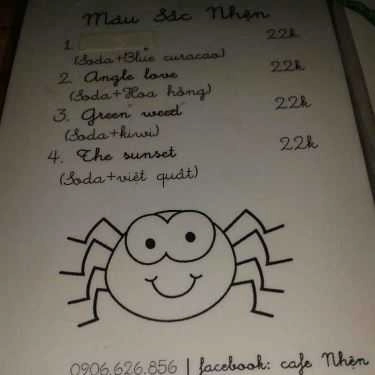 Màu Sắc Nhện
1. 22k
(Soda+Blue curacao)
2. Angle love 22k
(Soda+Hoa hồng)
3. Green weed 22k
(Soda+kiwi)
4. The sunset 22k
(Soda+việt quất)
0906.626.856 | facebook: cafe Nhện